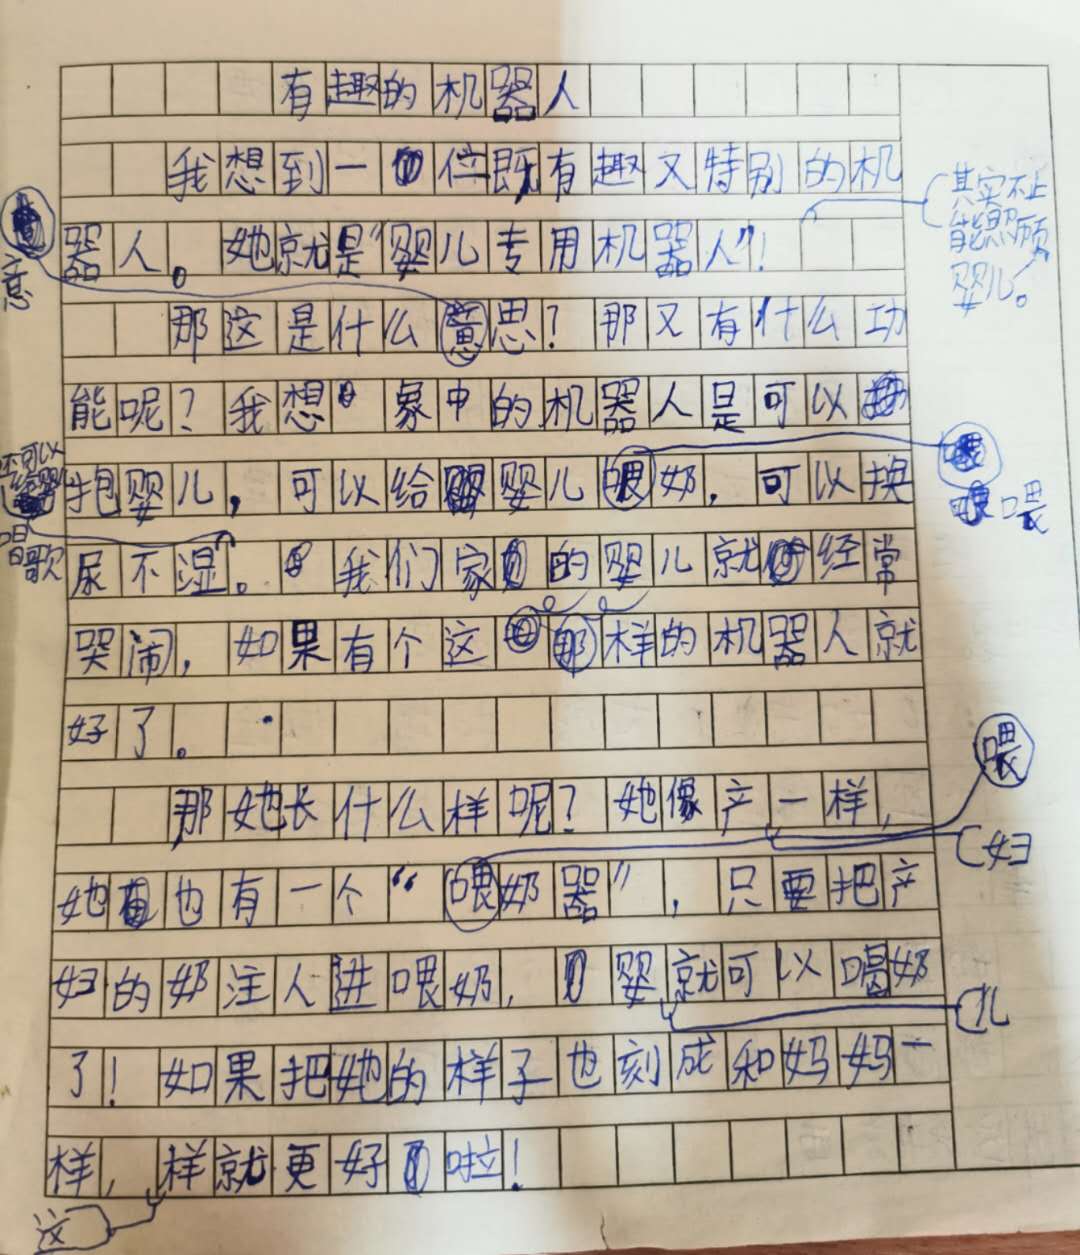 有趣的机器人
我想到一位既有趣又特别的机
其实不止
能照顾
婴儿。
器人。她就是"婴儿专用机器人"!
意
那这是什么意思?那又有什么功
能呢?我想象中的机器人是可以
还可以
给婴
唱歌
抱婴儿,可以给婴儿喂奶,可以换
喂
尿不湿。我们家的婴儿就经常
哭闹,如果有个这那样的机器人就
好了。
喂
那她长什么样呢?她像产一样,
妇
她也有一个"喂奶器",只要把产
妇的奶注人进喂奶,婴就可以喝奶
儿
了!如果把她的样子也刻成和妈妈一
样,样就更好啦!
这